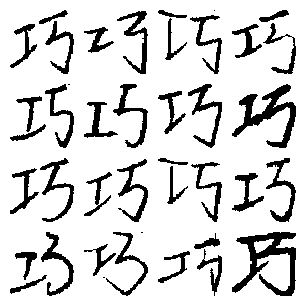 巧巧巧巧
巧巧巧巧
巧巧巧巧
巧巧巧巧